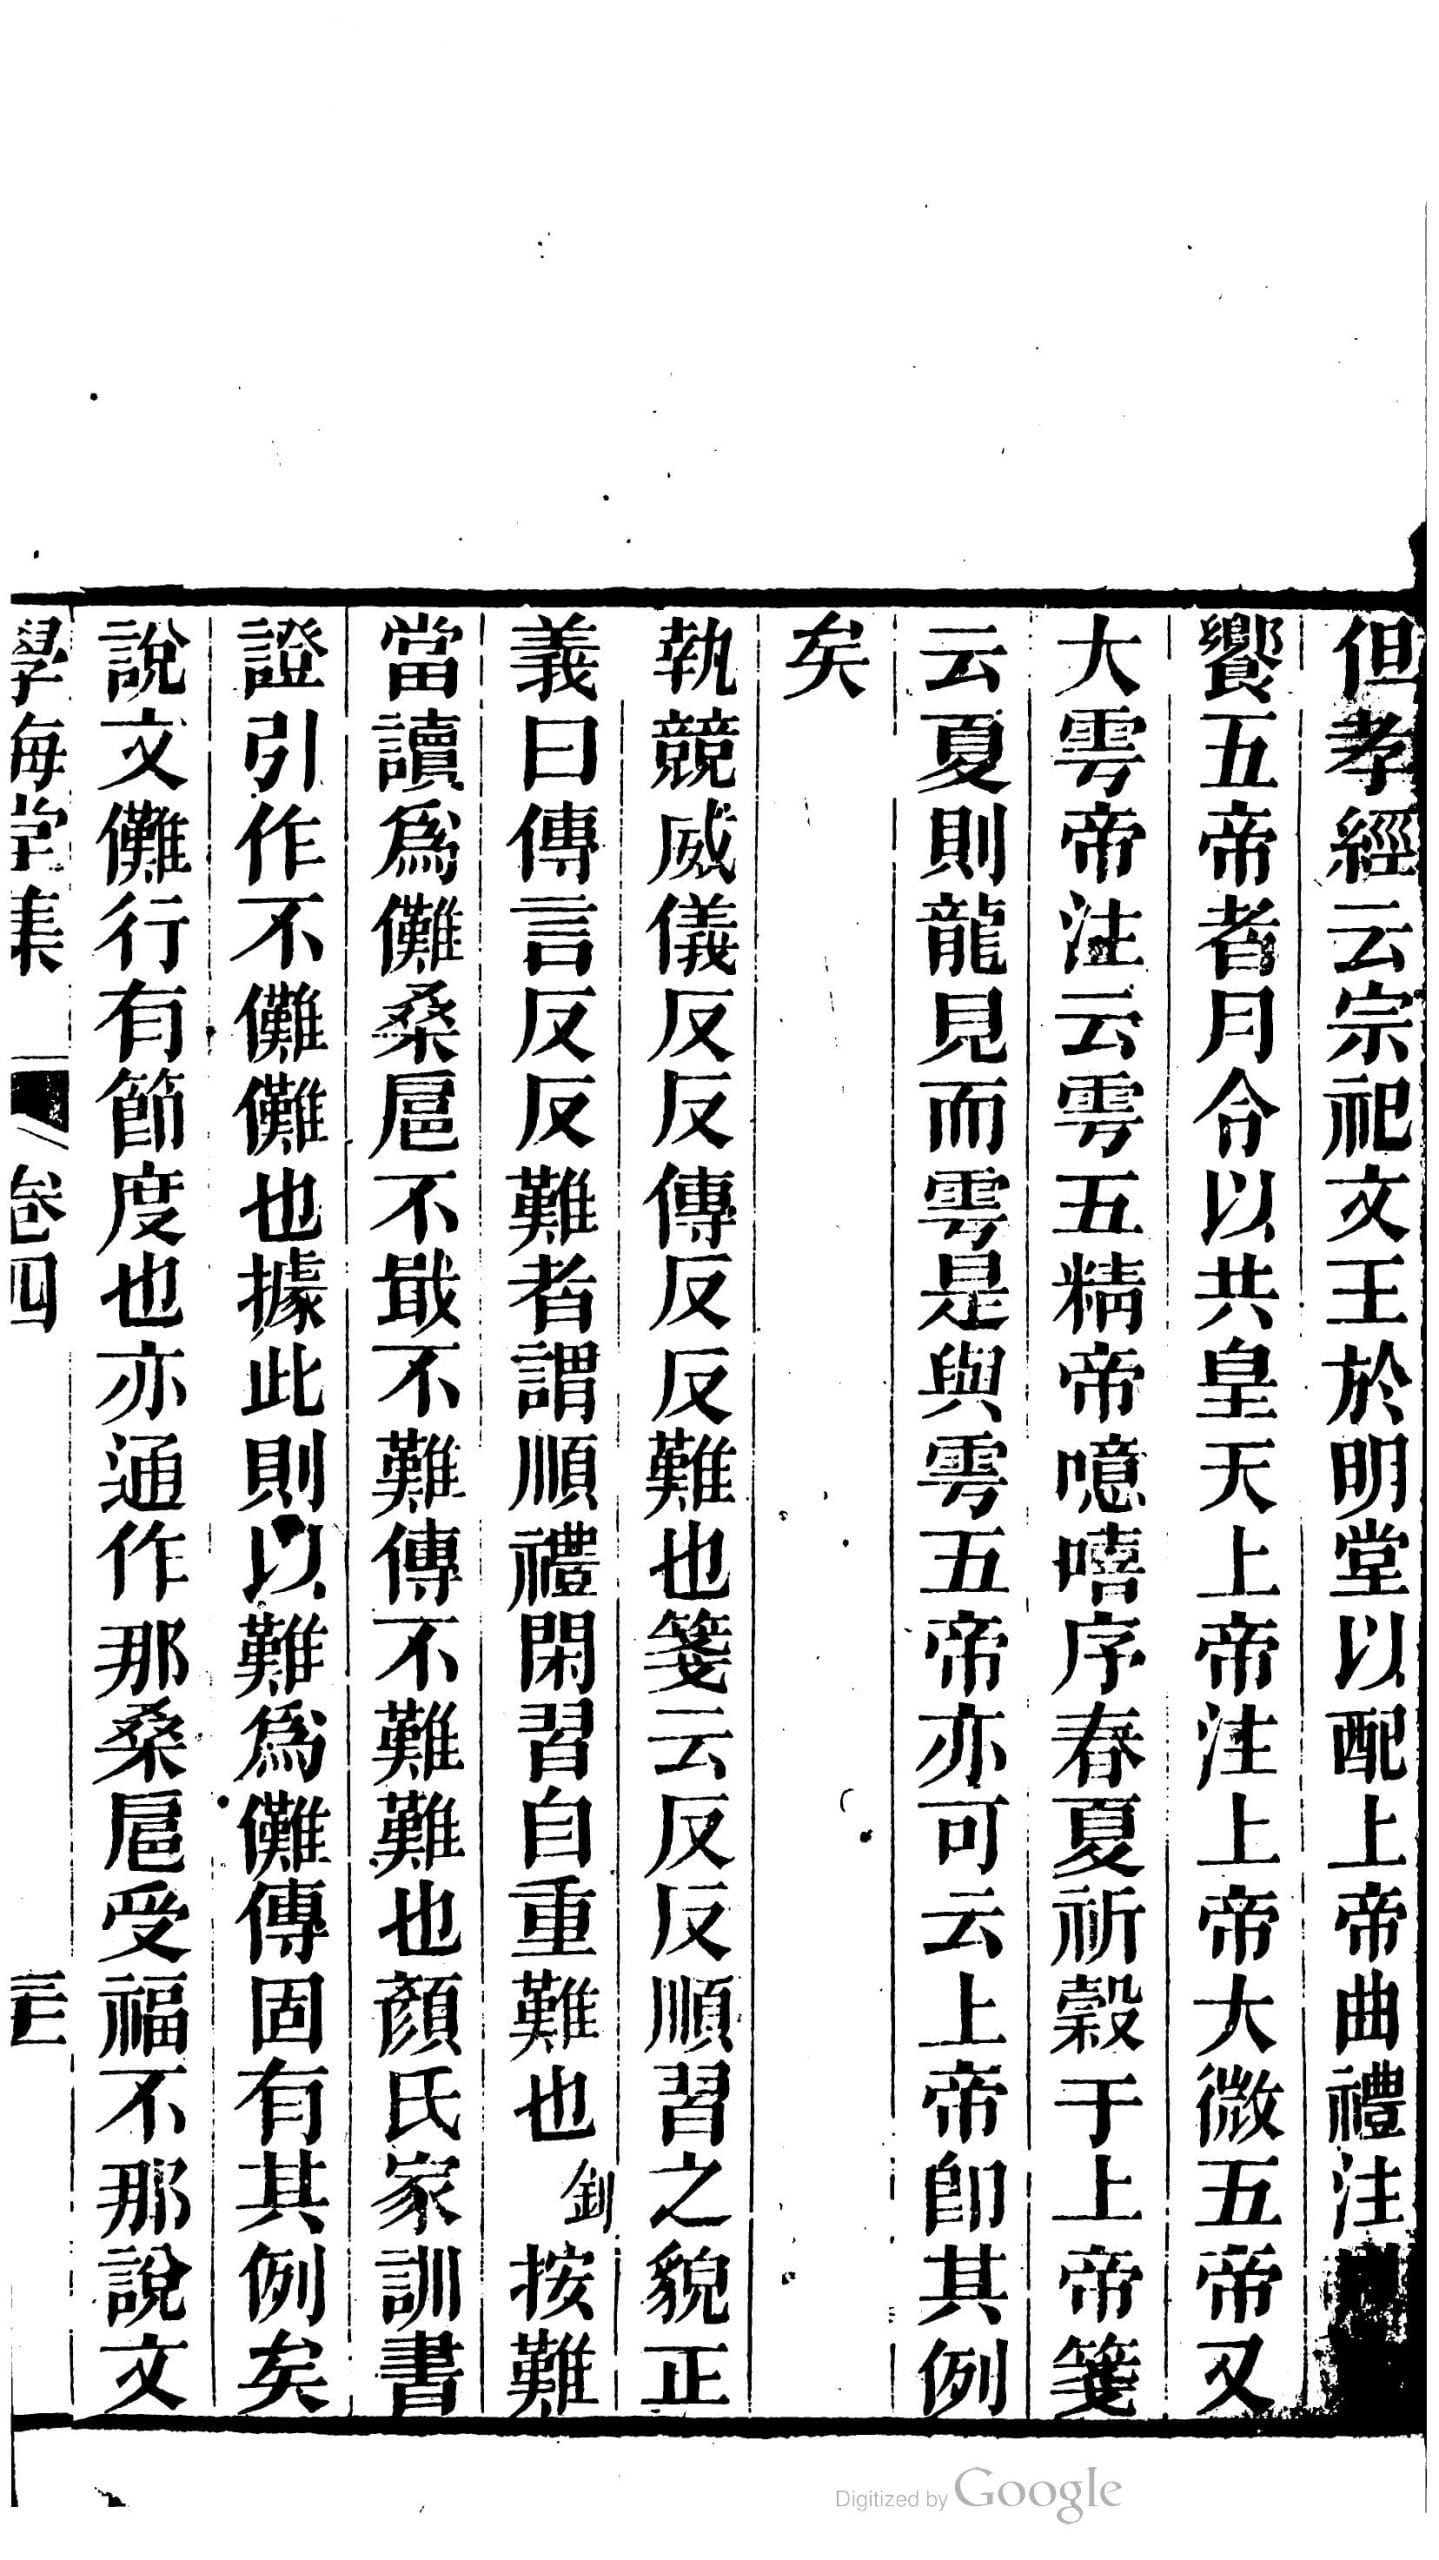 但孝經云宗祀文王於明堂以配上帝曲禮注
饗五帝者月令以共皇天上帝注上帝大微五帝又
大雩帝注云雩五精帝噫嘻序春夏祈穀于上帝箋
云夏則龍見而雩是與雩五帝亦可云上帝卽其例
矣
執競威儀反反傳反反難也箋云反反順習之貌正
義曰傳言反反難者謂順禮閑習自重難也釗按難
當讀爲儺桑扈不戢不難傳不難難也顏氏家訓書
證引作不儺儺也據此則以難爲儺傳固有其例矣
說文儺行有節度也亦通作那桑扈受福不那說文
學海堂集 卷四 三
Digitized by Google